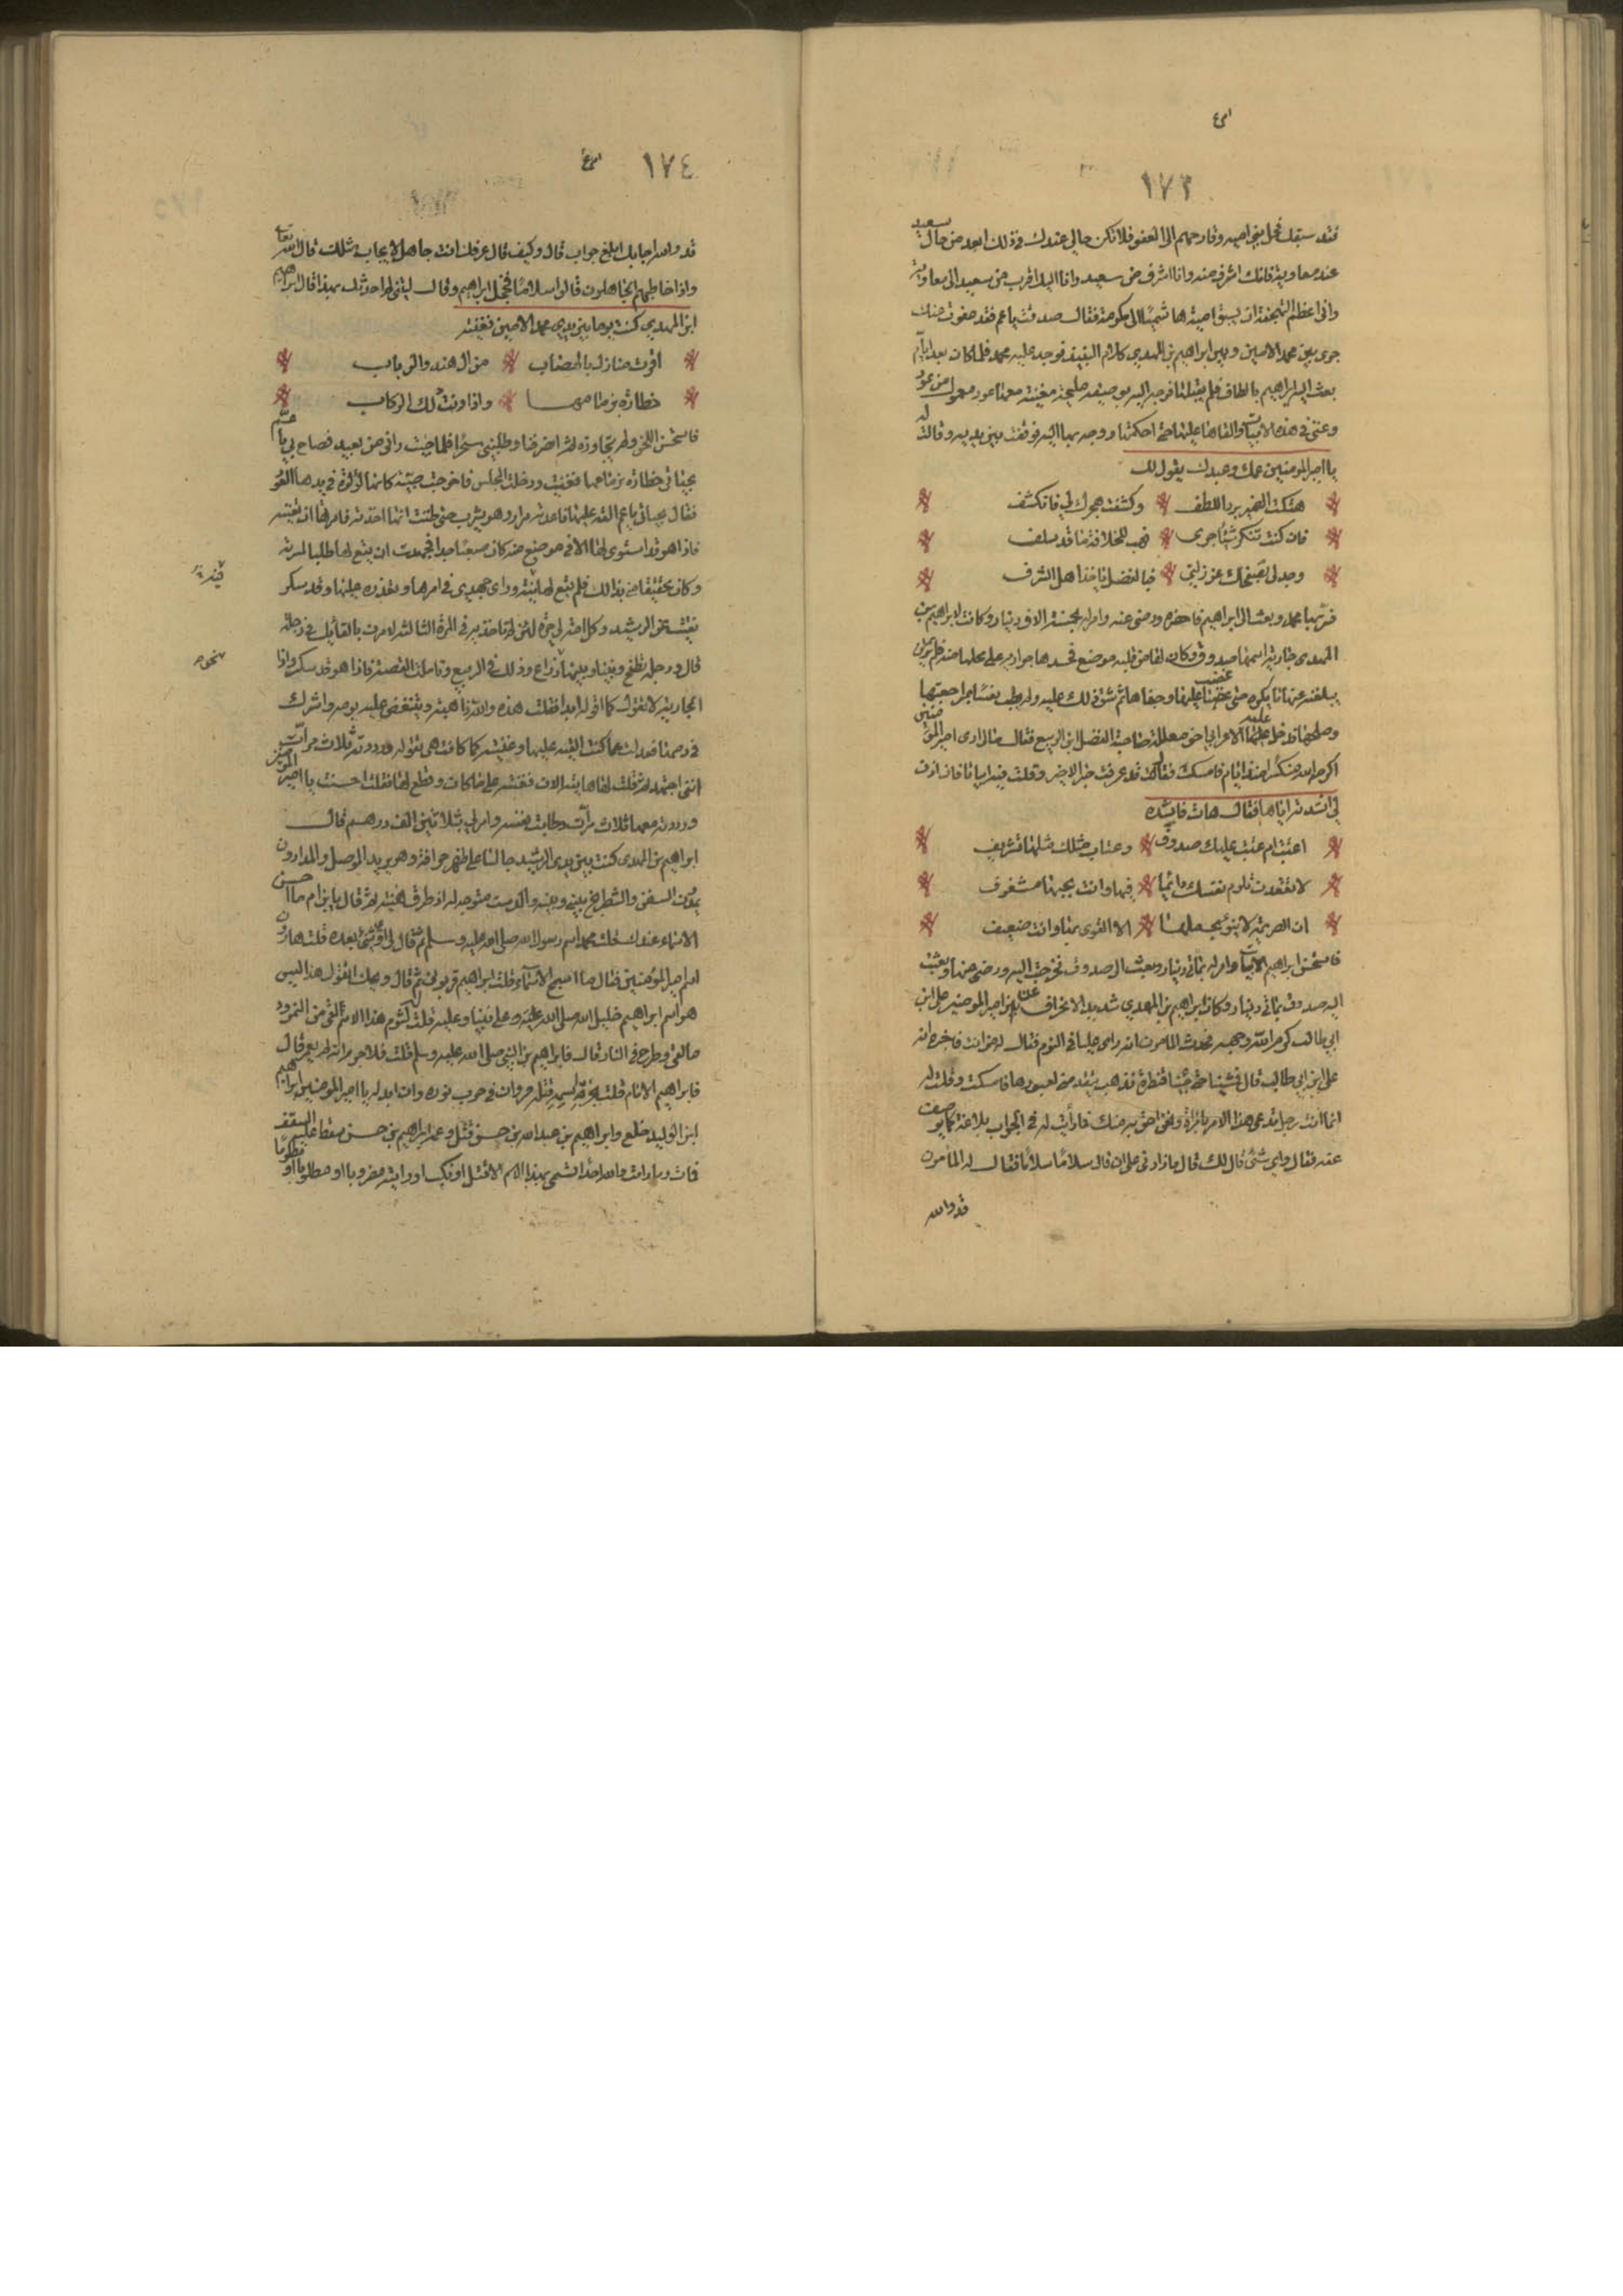 ١٧٣
فقد سبقك فحل بنواحيه وقادحهم الى العفو فلا تكن حالي عندك في ذلك ابعد من حال سعيد
عند معاوية فانك اشرف منه وانا اشرف من سعيد وانا اليك اقرب من سعيد الى معاوية
وان اعظم الهجنة ان يسبق امية هاشميا الى مكرمة فقال صدقت يا عم فقد عفوت عنك
جرى بين محمد الامين وبين ابراهيم بن المهدي كلام النبيذ فوجد عليه محمد فلما كان بعد ايام
بعث اليه ابراهيم بالطاف فلم يقبلها فوجه اليه بوصيفة مليحة مغنية معها عود معمول من عود
وغنى في هذه الابيات والقاها عليها حتى احكمتها ووجه بها اليه فوقفت بين يديه وقالت له
يا امير المومنين عمك وعبدك يقول لك
هتكت الضمير برد اللطف وكشفت هجرك لي فانكشف
فان كنت تنكر شيئا جرى فهب للخلافة ما قد سلف
وجد لي بصفحك عن زلتي فبالفضل ياخذ اهل الشرف
فسر بها محمد وبعث الى ابراهيم فاحضره ورضى عنه وامر له بخمسة الاف دينار وكانت لابراهيم بن
المهدى جارية اسمها صدوف وكان لها من قلبه موضع فحسدها جواريه على محلها منه فلم يزلن
يبلغنه عنها ما يكره حتى غضب عليها وجفاها ثم شق ذلك عليه ولم يطب نفسا بمراجعتها
وصلحها فدخل عليه الاعرابي اخو معللة صاحبة الفضل ابن الربيع فقال ما لي ارى امير المومنين
اكرمه الله منكسرا منذ ايام فامسك فقال قد عرفت خبر الامير وقلت فيه ابياتا فان اذن
لي انشدته اياها فقال هات فانشده
اعتبت ام عتبت عليك صدوف وعتاب مثلك مثلها تشريف
لا تقعدن تلوم نفسك دائما فيها وانت بحبها مشغوف
ان الصريمة لا ينؤ بحملها الا القوى بها وانت ضعيف
فاستحسن ابراهيم الابيات وامر له بمائتي دينار وبعث الى صدوف فخرجت اليه ورضى عنها وبعثت
اليه صدوف بمائتي دينار وكان ابراهيم بن المهدي شديد الانحراف عن امير المومنين على ابن
ابي طالب كرم الله وجهه فحدث المامون انه راى عليا في النوم فقال له من انت فاخبره انه
على ابن ابي طالب قال فمشينا حتى جئنا قنطرة فذهب يتقدمني لعبورها فامسكته وقلت له
انما انت رجل تدعى هذا الامر بامرأة ونحن احق به منك فما رأيت له في الجواب بلاغة كما يوصف
عنه فقال واي شئ قال لك قال ما زادني على ان قال سلاما سلاما فقال له المأمون
قد والله
١٧٤
قد والله اجابك ابلغ جواب قال وكيف قال عرفك انت جاهل لا يجاب مثلك قال الله تعالى
واذا خاطبهم الجاهلون قالوا سلاما فخجل ابراهيم وقال ليتني لم احدثك بهذا قال ابراهيم
ابن المهدي كنت يوما بين يدي محمد الامين فغنيته
اقوت منازل بالهضاب من ال هند والرباب
خطارة بزمامها واذا ونت ذلك الركاب
فاستحسن اللحن ولم يتجاوزه ثم انصرفنا وطلبني سحرا فلما جئت رانى من بعيد فصاح بي يا عم
بحياتي خطارة بزمامها فغنيت ودخلت المجلس فاخرجت صبية كانها لؤلؤة في يدها العود
فقال بحياتي يا عم القه عليها فاعدته مرار وهو يشرب حتى ظننت انها اخذته فامرتها ان تغنيه
فاذا هو قد استوى لها الا في موضع منه كان صعبا جدا فجهدت ان يقع لها طلبا لمسرته
وكان حقيقا مني بذالك فلم يقع لها البتة وراى جهدي في امرها وتعذره عليها وقد سكر
نفيت من الرشيد وكل امة لي حرة لئن لم تاخذيه في المرة الثالثة لامرت بالقائك في دجلة
قال ودجلة تطفح وبيننا وبينها ذراع وذلك في الربيع وتاملت القصة فاذا هو قد سكر واذا
الجارية لا تقول كما اقوله ابدا فقلت هذه والله داهية ويتنغص عليه يومه واشرك
في دمها فعدلت عما كنت القيه عليها وغنيته كما كانت هى تقوله ورددته ثلاث مرات
انى اجتهد ثم قلت لها هاتيه الان فغنته على ما كان وقطع لها فقلت احسنت يا امير المومنين
ورددته معها ثلاث مرات وطابت نفسه وامر لي بثلاثين الف درهم قال
ابراهيم بن المهدى كنت بين يدى الرشيد جالسا على ظهر حراقة وهو يريد الموصل والمدادون
يمدون السفن والشطرنج بيني وبينه والدست متوجه له اذ اطرق هنيئة ثم قال يا بن ام ما احسن
الاسماء عندك قلت محمد اسم رسول الله صلى الله عليه وسلم ثم قال لي اي شئ بعده قلت هارون
اسم امير المؤمنين فقال ما اسمج الاسماء قلت ابراهيم فزبرني ثم قال ويحك اتقول هذا اليس
هو اسم ابراهيم خليل الله صلى الله عليه وعلى نبينا وعليه قلت لشوم هذا الاسم لقى من النمرود
ما لقى وطرح في النار قال فابراهيم بن النبي صلى الله عليه وسلم قلت فلا جرم انه لم يعمر قال
فابراهيم الامام قلت بحرفة اسمه قتله مروان في حرب نوره وان ابد له يا امير المومنين ابراهيم
ابن الوليد خلع وابراهيم بن عبد الله بن حسن قتل وعمه ابراهيم بن حسن سقط عليه السقف
فمات وما رايت والله احدا تسمى بهذا الاسم الا قتل او نكب او رايته مضروبا او مطلوبا او مظلوما